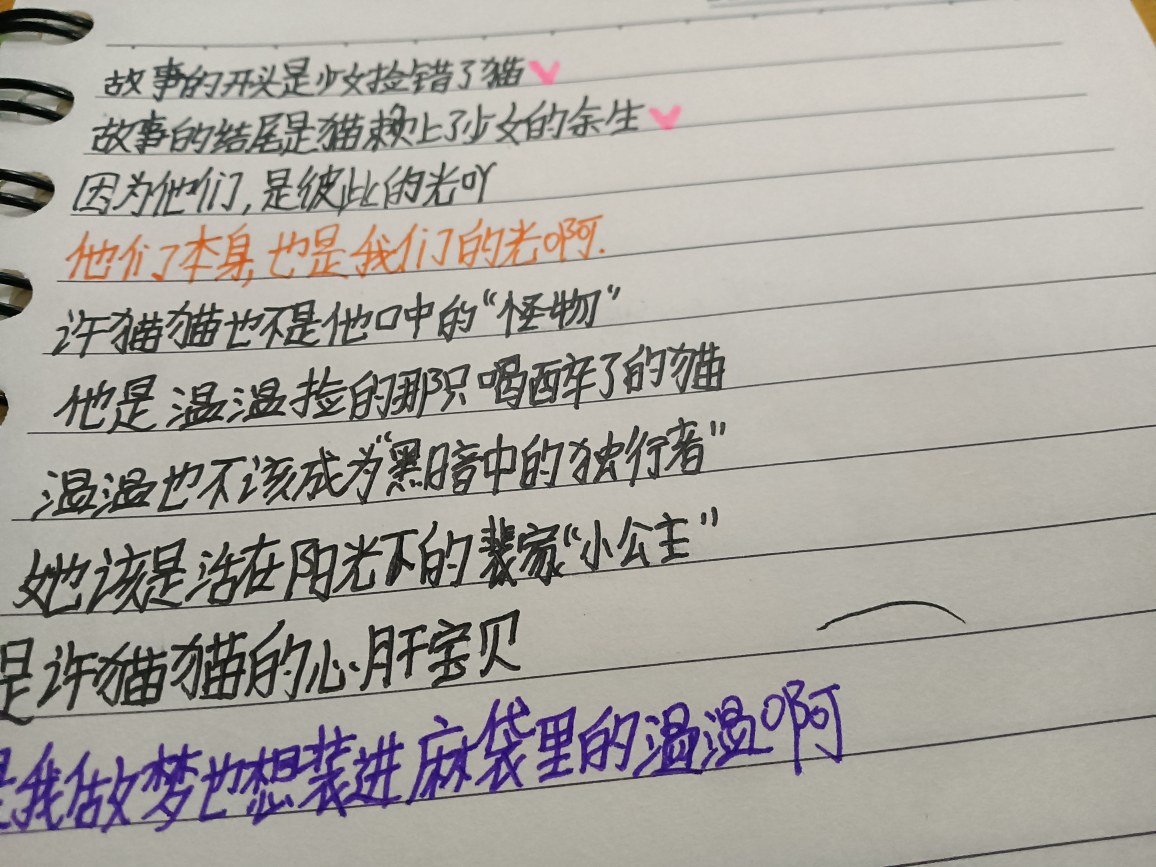 故事的开头是少女捡错了猫
故事的结尾是猫赖上了少女的余生
因为他们,是彼此的光吖
他们本身,也是我们的光啊.
许猫猫也不是他口中的“怪物“
他是温温捡的那只喝醉了的猫
温温也不该成为“黑暗中的独行者”
她该是活在阳光下的裴家“小公主”
是许猫猫的心肝宝贝
是我做梦也想装进麻袋里的温温啊